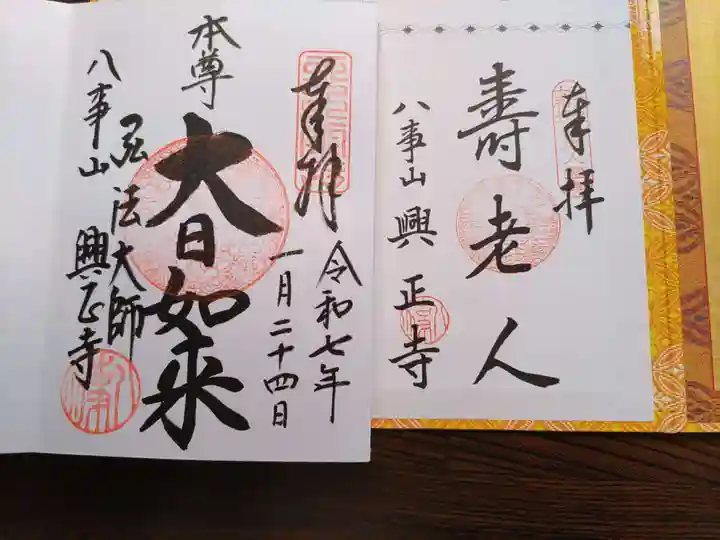 奉拝
寿老人
八事山 興正寺
奉拝
令和七年
一月二十四日
本尊
大日如来
弘法大師
八事山 興正寺